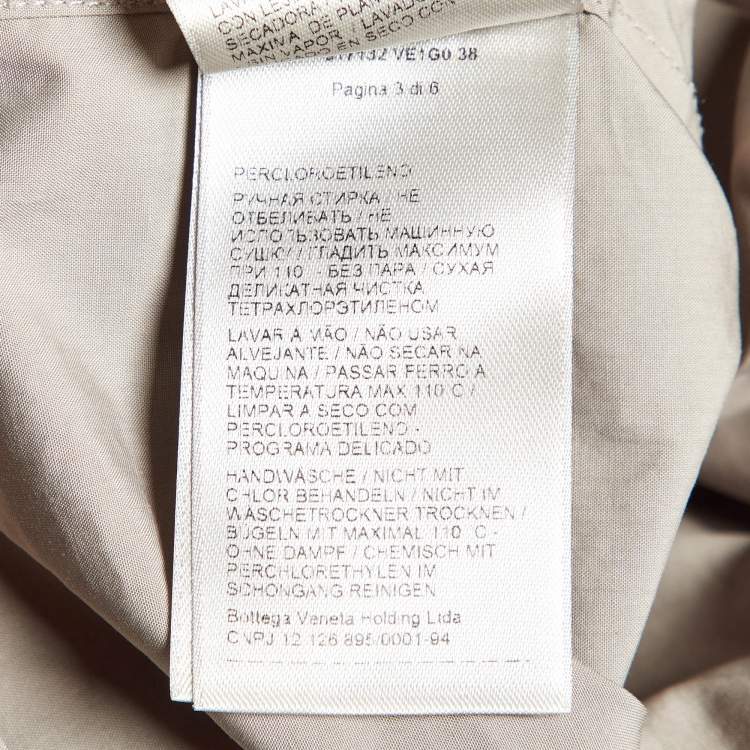 CON LE
SECADORA
MAXIMA DE PLAN
SIN VAPOR / LAVADO
EN SECO CON
VE1G0 38
Pagina 3 di 6
PERCLOROETILENO
РУЧНАЯ СТИРКА / НЕ
ОТБЕЛИВАТЬ / НЕ
ИСПОЛЬЗОВАТЬ МАШИННУЮ
СУШКУ / ГЛАДИТЬ МАКСИМУМ
ПРИ 110 - БЕЗ ПАРА / СУХАЯ
ДЕЛИКАТНАЯ ЧИСТКА
ТЕТРАХЛОРЭТИЛЕНОМ
LAVAR A MÃO / NÃO USAR
ALVEJANTE / NÃO SECAR NA
MAQUINA / PASSAR FERRO A
TEMPERATURA MAX 110 C /
LIMPAR A SECO COM
PERCLOROETILENO -
PROGRAMA DELICADO
HANDWÄSCHE / NICHT MIT
CHLOR BEHANDELN / NICHT IM
WÄSCHETROCKNER TROCKNEN /
BÜGELN MIT MAXIMAL 110 C -
OHNE DAMPF / CHEMISCH MIT
PERCHLORETHYLEN IM
SCHONGANG REINIGEN
Bottega Veneta Holding Ltda
CNPJ 12 126 895/0001-94